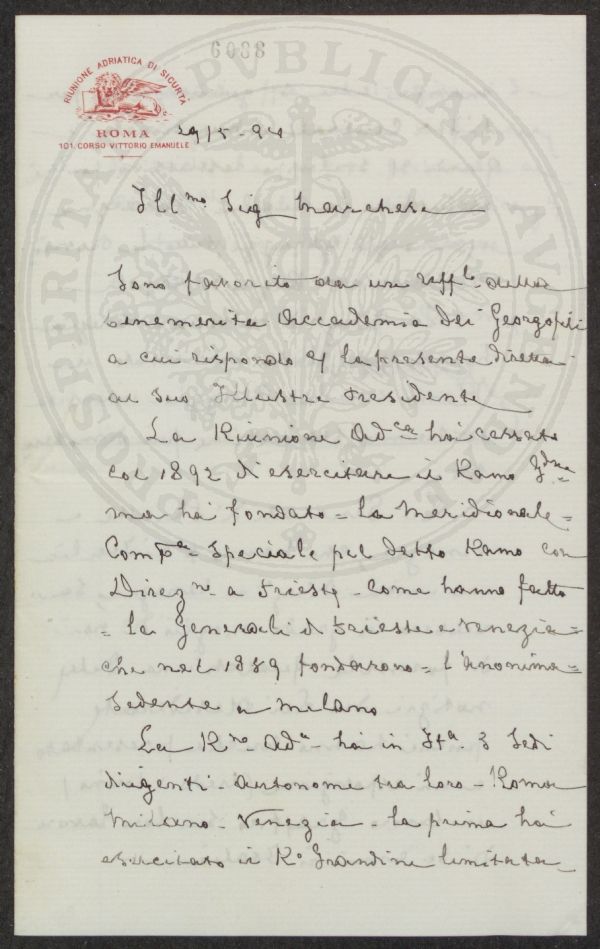 6088
RIUNIONE ADRIATICA DI SICURTÀ
ROMA
101. CORSO VITTORIO EMANUELE
29/5-94
Ill mo Sig Marchese
Sono favorito da un uff.lo della
benemerita Accademia dei Georgofili
a cui rispondo la presente diretta
al suo Illustre Presidente
La Riunione Ad.ca ha cessato
col 1892 d'esercitare il Ramo
ma ha fondato = La Meridionale =
Comp.a speciale pel detto Ramo con
Direz.ne a Trieste - come hanno fatto
= le Generali di Trieste e Venezia =
che nel 1889 fondarono = l'anonima =
Sedente a Milano
La R.ne Ad.a ha in It.a 3 Sedi
dirigenti - autonome tra loro - Roma
Milano - Venezia - la prima ha
esercitato il R.o Grandine limitata
PROSPERITATI PVBLICAE AVGENDAE